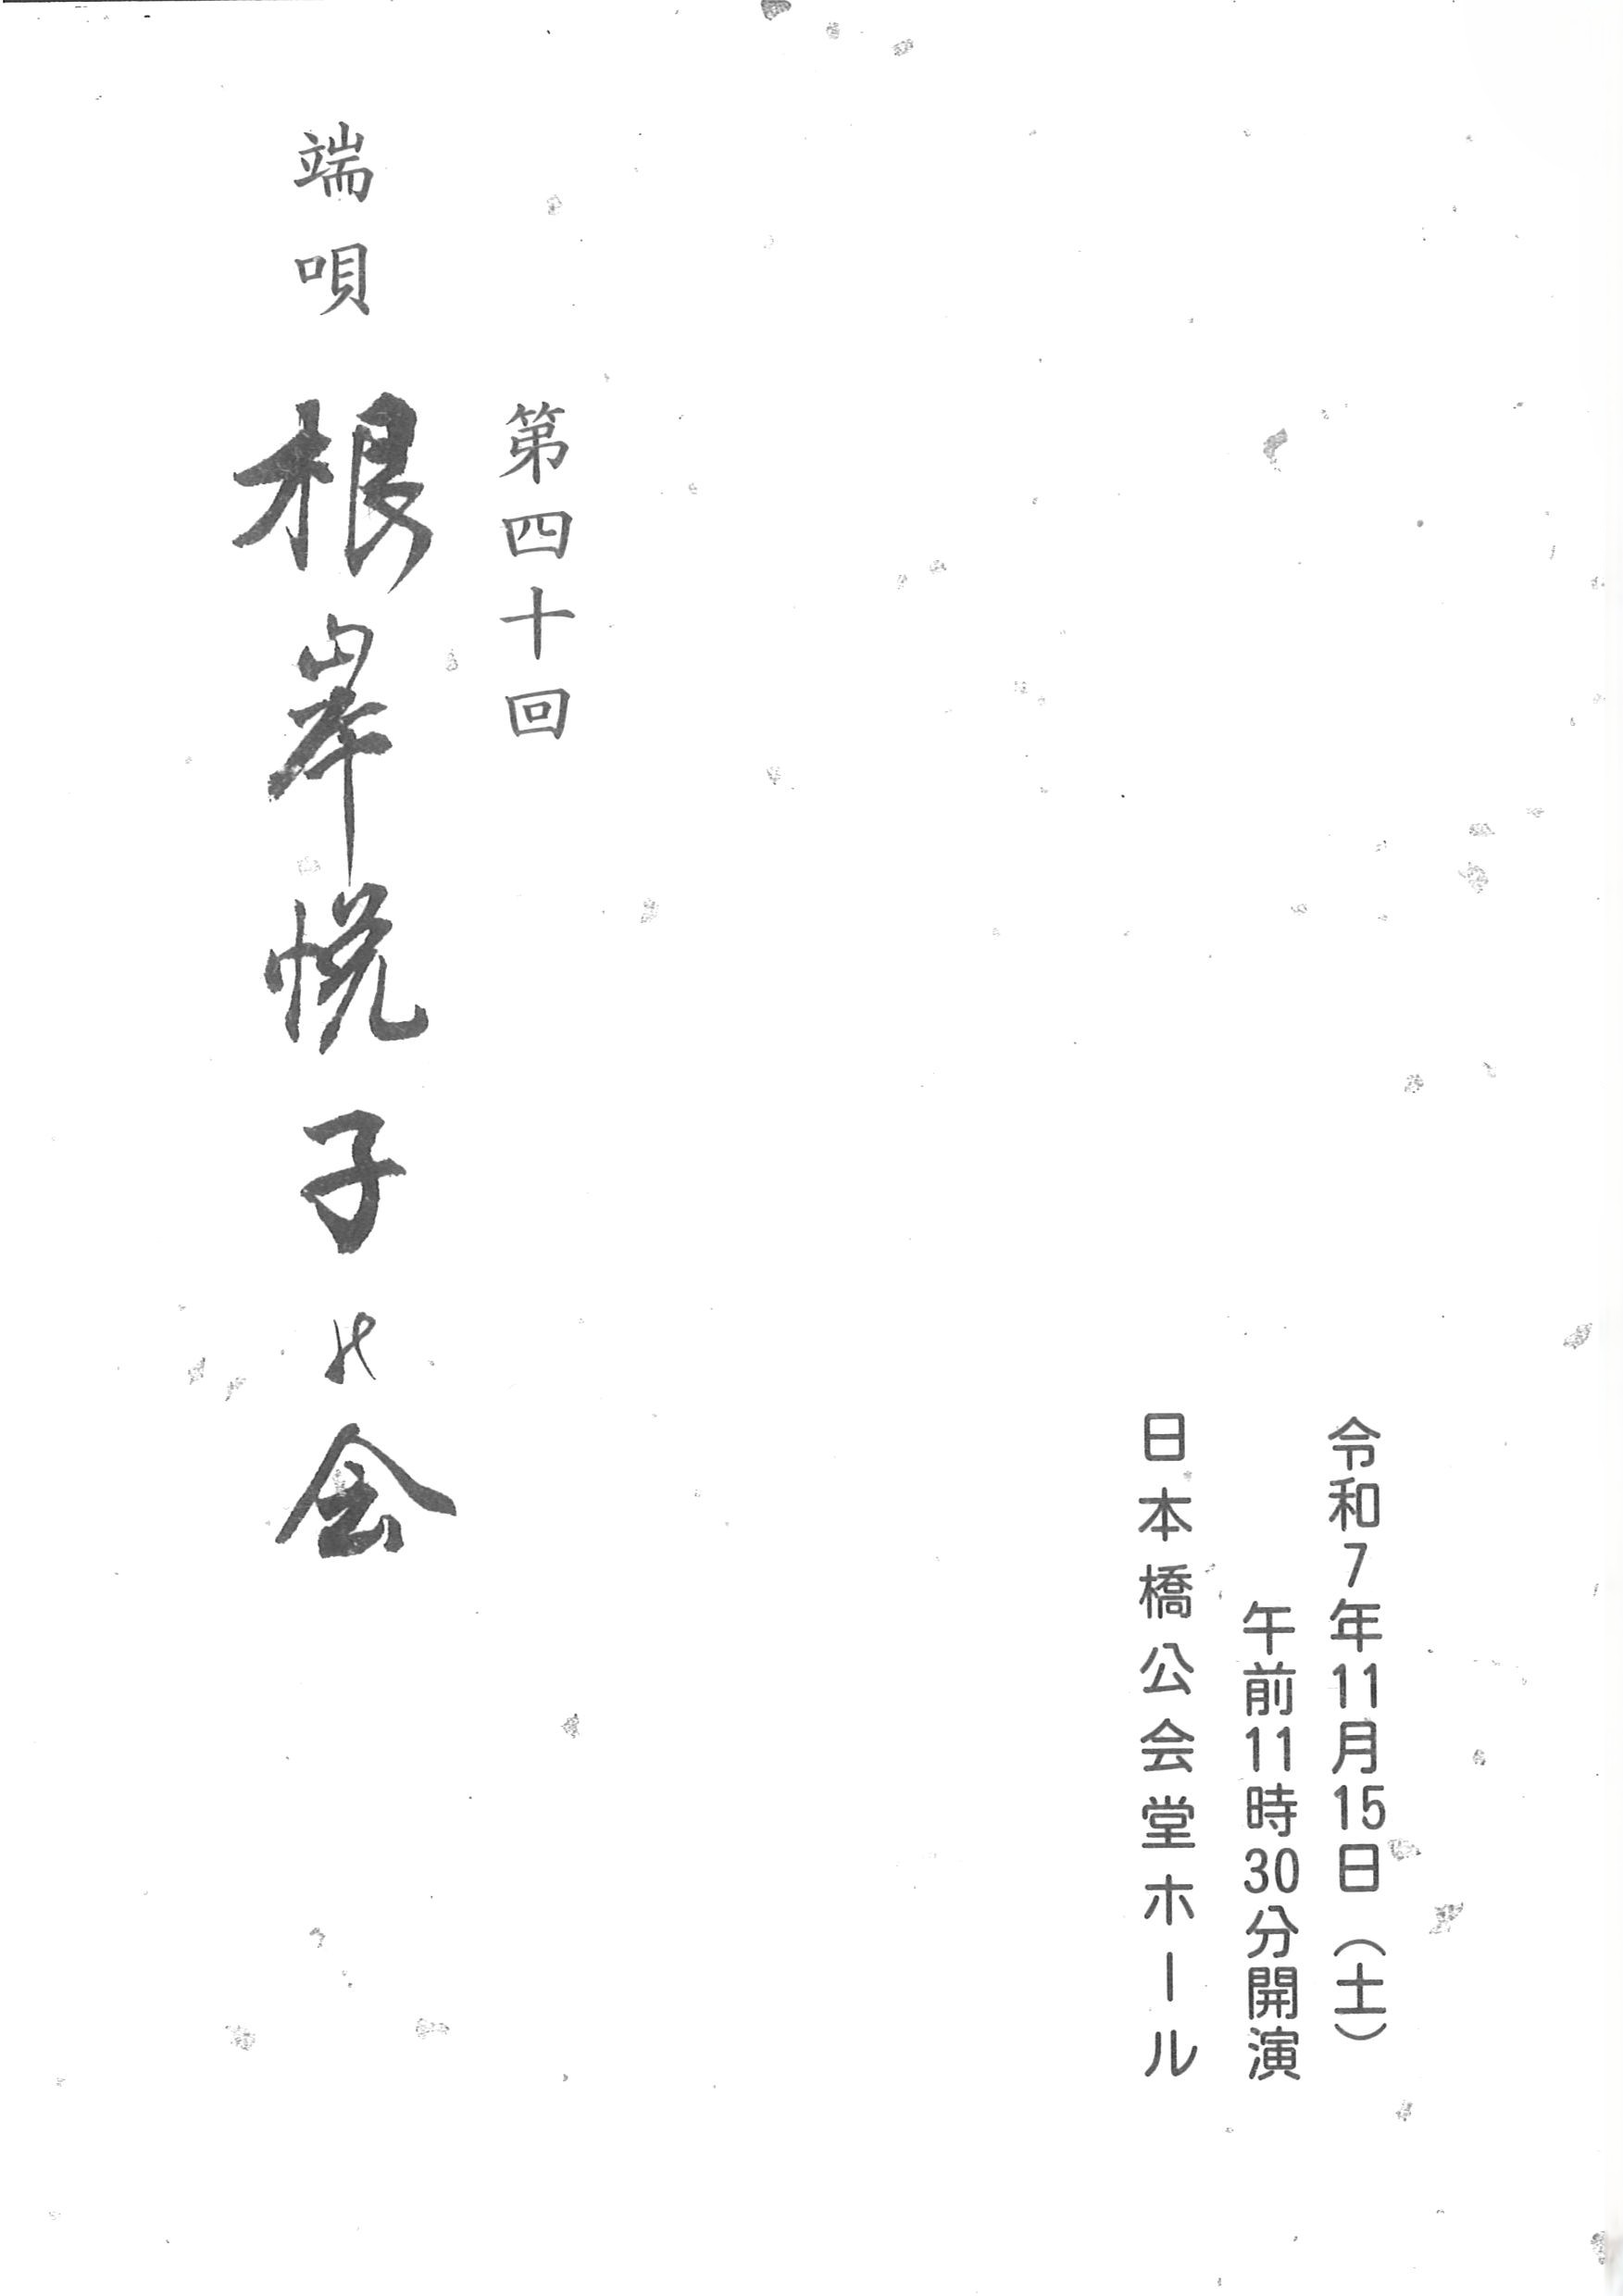 令和7年11月15日（土）
午前11時30分開演
日本橋公会堂ホール
第四十回
端唄 根岸悦子の会